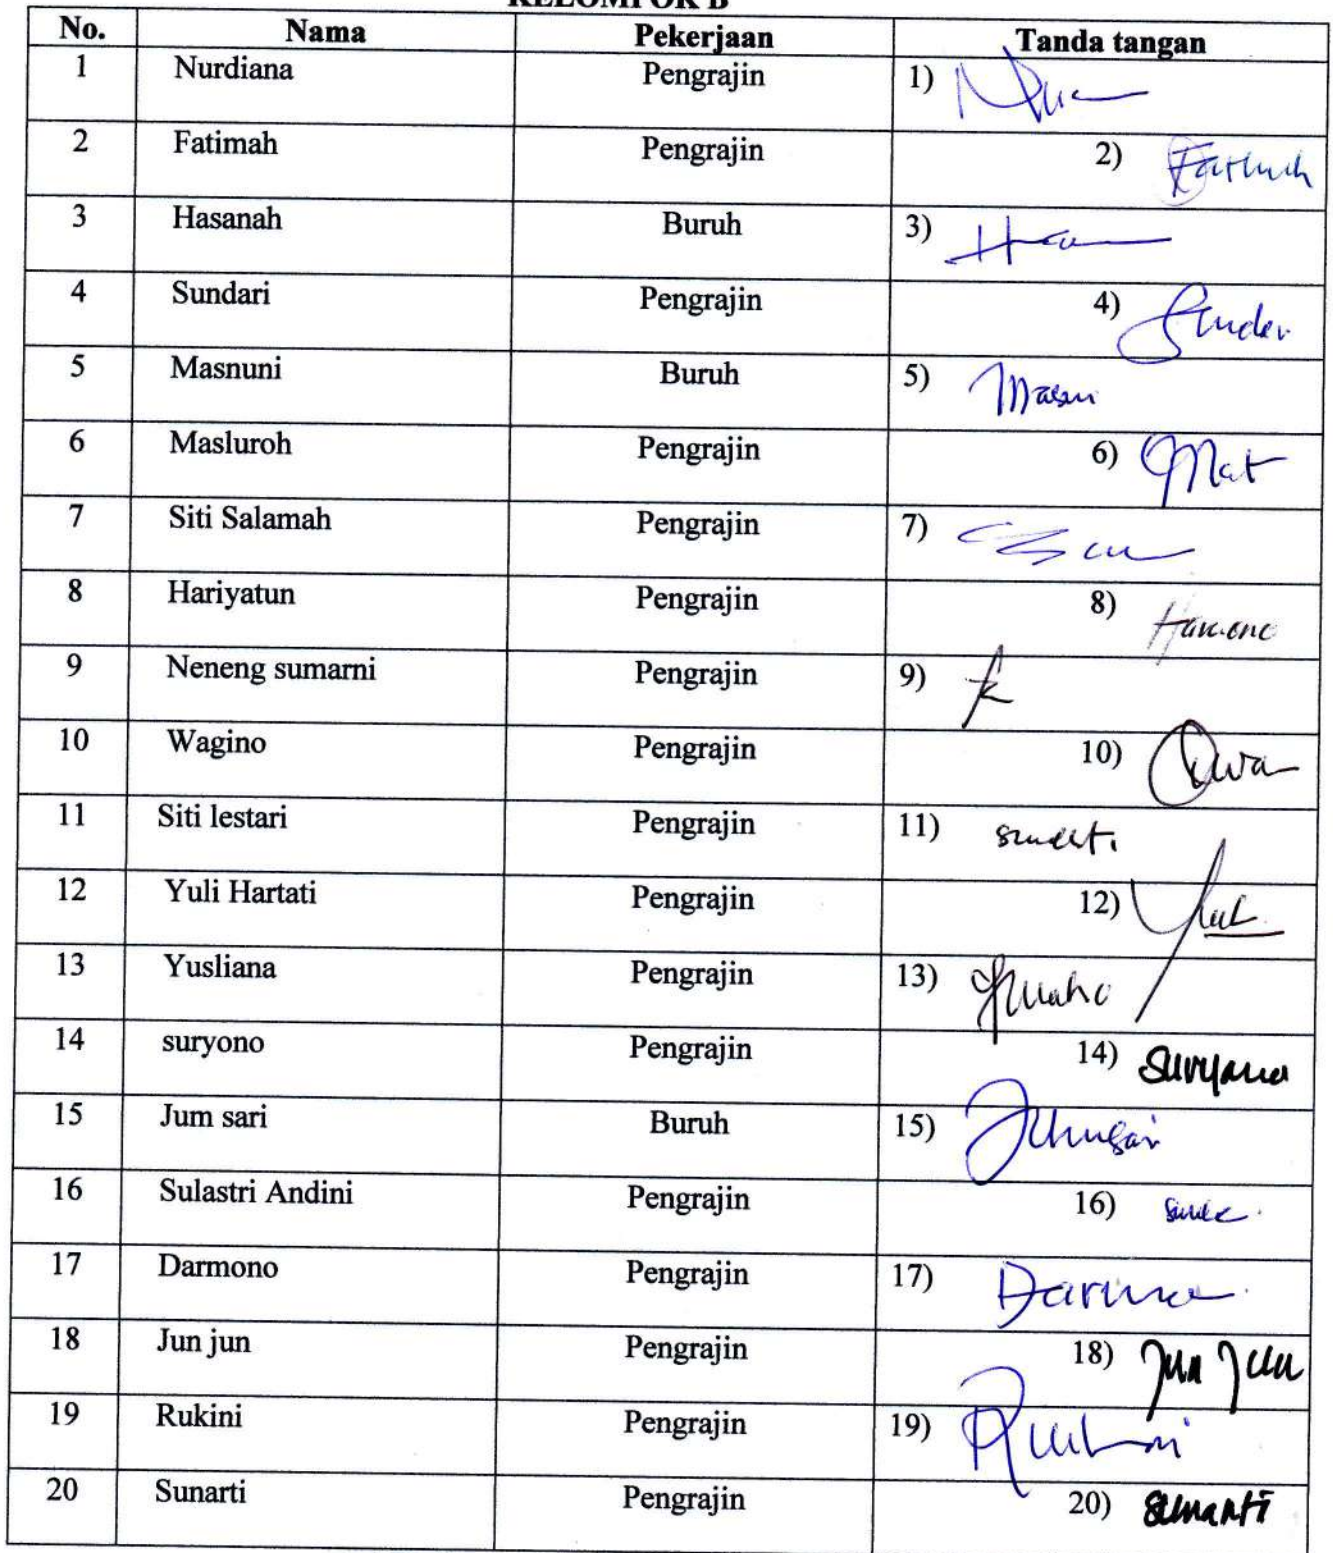 KELOMPOK B
No. Nama Pekerjaan Tanda tangan
1 Nurdiana Pengrajin 1)
2 Fatimah Pengrajin 2)
3 Hasanah Buruh 3)
4 Sundari Pengrajin 4)
5 Masnuni Buruh 5)
6 Masluroh Pengrajin 6)
7 Siti Salamah Pengrajin 7)
8 Hariyatun Pengrajin 8)
9 Neneng sumarni Pengrajin 9)
10 Wagino Pengrajin 10)
11 Siti lestari Pengrajin 11)
12 Yuli Hartati Pengrajin 12)
13 Yusliana Pengrajin 13)
14 suryono Pengrajin 14)
15 Jum sari Buruh 15)
16 Sulastri Andini Pengrajin 16)
17 Darmono Pengrajin 17)
18 Jun jun Pengrajin 18) Jun Jun
19 Rukini Pengrajin 19)
20 Sunarti Pengrajin 20) Sunarti